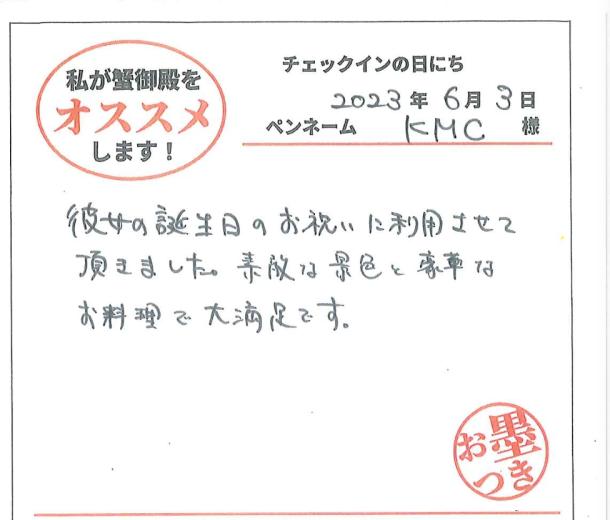 私が蟹御殿を
オススメ
します！
チェックインの日にち
2023年 6月 3日
ペンネーム KMC 様
彼女の誕生日のお祝いに利用させて
頂きました。素敵な景色と豪華な
お料理で大満足です。
お墨
つき